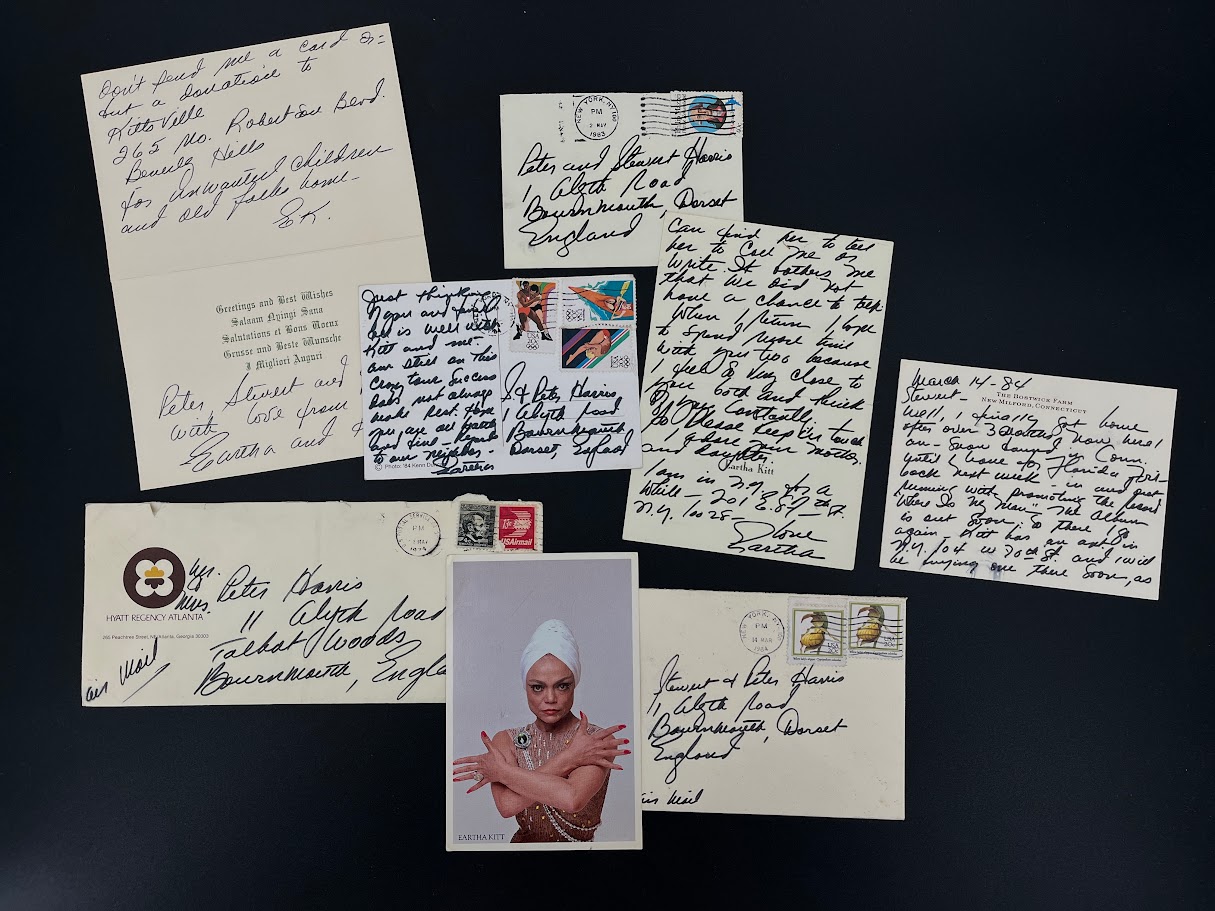 Don't send me a card
but a donation to
Kittsville
265 No. Robertson Blvd.
Beverly Hills
for unwanted children
and old folks home -
EK.
Greetings and Best Wishes
Salaam Nyingi Sana
Salutations et Bons Voeux
Grusse und Beste Wunsche
I Migliori Auguri
Peter, Stewert and
with love from
Eartha and
NEW YORK, NY
PM
2 MAY
1983
Peter and Stewert Harris
Alyth Road
Bournmouth, Dorset
England
Just thinking
of you and
all is well with
Kitt and me.
are still on this
crazy tour success
does not always
make rest. Hope
you are all
and fine - Regards
to our neighbor -
& Peter Harris
Alyth Road
Bournemouth
Dorset, England
© Photo: '84 Kenn
can find her to tell
her to call me or
write. It bothers me
that we did not
have a chance to talk.
When I return I hope
to spend more time
with you two because
I feel so very close to
you both and think
of you constantly.
So please keep in touch
I adore your mother.
and daughter
Eartha Kitt
I am in N.Y. for a
while - 201 E.
N.Y. 10028 -
Love
Eartha
March 14 - 84
THE BOSTWICK FARM
NEW MILFORD, CONNECTICUT
Stewert -
Well, I finally got home
after over 3 months, now here I
am - snow bound in Conn.
until I leave for Florida
back next week - in and out
running with promoting the record
"Where Is My Man" The Album
is out soon. So there I go
again. Kitt has an apt. in
N.Y. 104 W 70th St. and I will
be buying one there soon, as
HYATT REGENCY ATLANTA
265 Peachtree Street, NE Atlanta, Georgia 30303
Mr.
Mrs. Peter Harris
11 Alyth Road
Talbot Woods
Bournmouth, Engla
air Mail
PM
USAirmail
EARTHA KITT
NEW YORK, NY
PM
1984
USA
20c
USA
20c
Stewert & Peter Harris
Alyth Road
Bournmouth, Dorset
England
Mail